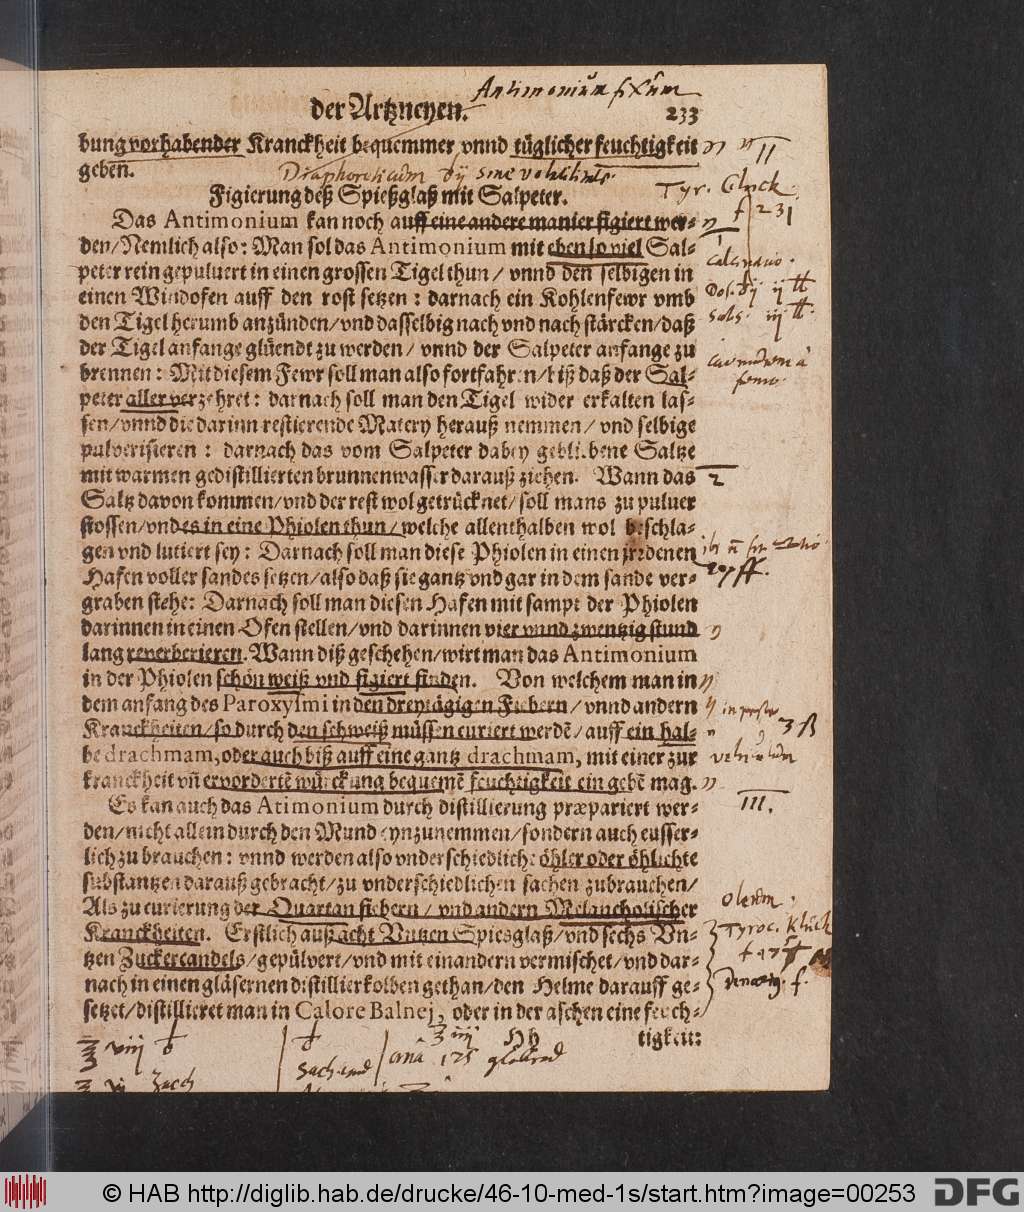 Antimoniũm fixũm
der Artzneyen. 233
bung vorhabender Kranckheit bequemmer vnnd tüglicher feuchtigkeit
geben.
Figierung deß Spießglaß mit Salpeter.
Tyr. Gluck
f 231
Das Antimonium kan noch auff eine andere manier figiert wer-
den/Nemlich also: Man sol das Antimonium mit eben so viel Sal-
peter rein gepuluert in einen grossen Tigel thun/ vnnd den selbigen in
einen Windofen auff den rost setzen: darnach ein Kohlenfewr vmb
den Tigel herumb anzünden/vnd dasselbig nach vnd nach stärcken/daß
der Tigel anfange glüendt zu werden/ vnnd der Salpeter anfange zu
brennen: Mit diesem Fewr soll man also fortfahren/biß daß der Sal-
peter aller verzehret: darnach soll man den Tigel wider erkalten las-
sen/vnnd die darinn restierende Matery herauß nemmen/ vnd selbige
pulverisieren: darnach das vom Salpeter dabey gebliebene Saltze
mit warmen gedistillierten brunnenwasser darauß ziehen. Wann das
Saltz davon kommen/vnd der rest wol getrücknet/ soll mans zu puluer
stossen/vnd es in eine Phiolen thun/ welche allenthalben wol beschla-
gen vnd lutiert sey: Darnach soll man diese Phiolen in einen jrrdenen
Hafen voller sandes setzen/also daß sie gantz vnd gar in dem sande ver-
graben stehe: Darnach soll man diesen Hafen mit sampt der Phiolen
darinnen in einen Ofen stellen/vnd darinnen vier vnnd zwentzig stund
lang reverberieren. Wann diß geschehen/wirt man das Antimonium
in der Phiolen schön weiß vnd figiert finden. Von welchem man in
dem anfang des Paroxysmi in den dreytägigen Fiebern/ vnnd andern
Kranckheiten/so durch den schweiß müssen curiert werdẽ/ auff ein hal-
be drachmam, oder auch biß auff eine gantz drachmam, mit einer zur
kranckheit vñ ervordertẽ würckung bequemẽ feuchtigkeit ein gebẽ mag.
III.
Es kan auch das Atimonium durch distillierung præpariert wer-
den/nicht allein durch den Mund eynzunemmen/sondern auch eusser-
lich zu brauchen: vnnd werden also vnderschiedliche öhler oder öhlichte
substantzen darauß gebracht/zu vnderschiedlichen sachen zubrauchen/
Als zu curierung der Quartan fiebern/ vnd andern Melancholischer
Kranckheiten. Erstlich auß acht Vntzen Spiesglaß/vnd sechs Vn-
tzen Zuckercandels/gepülvert/vnd mit einandern vermischet/vnd dar-
nach in einen gläsernen distillierkolben gethan/den Helme darauff ge-
setzet/distillieret man in Calore Balnej, oder in der aschen eine feuch-
Hh tigkeit:
© HAB http://diglib.hab.de/drucke/46-10-med-1s/start.htm?image=00253
DFG